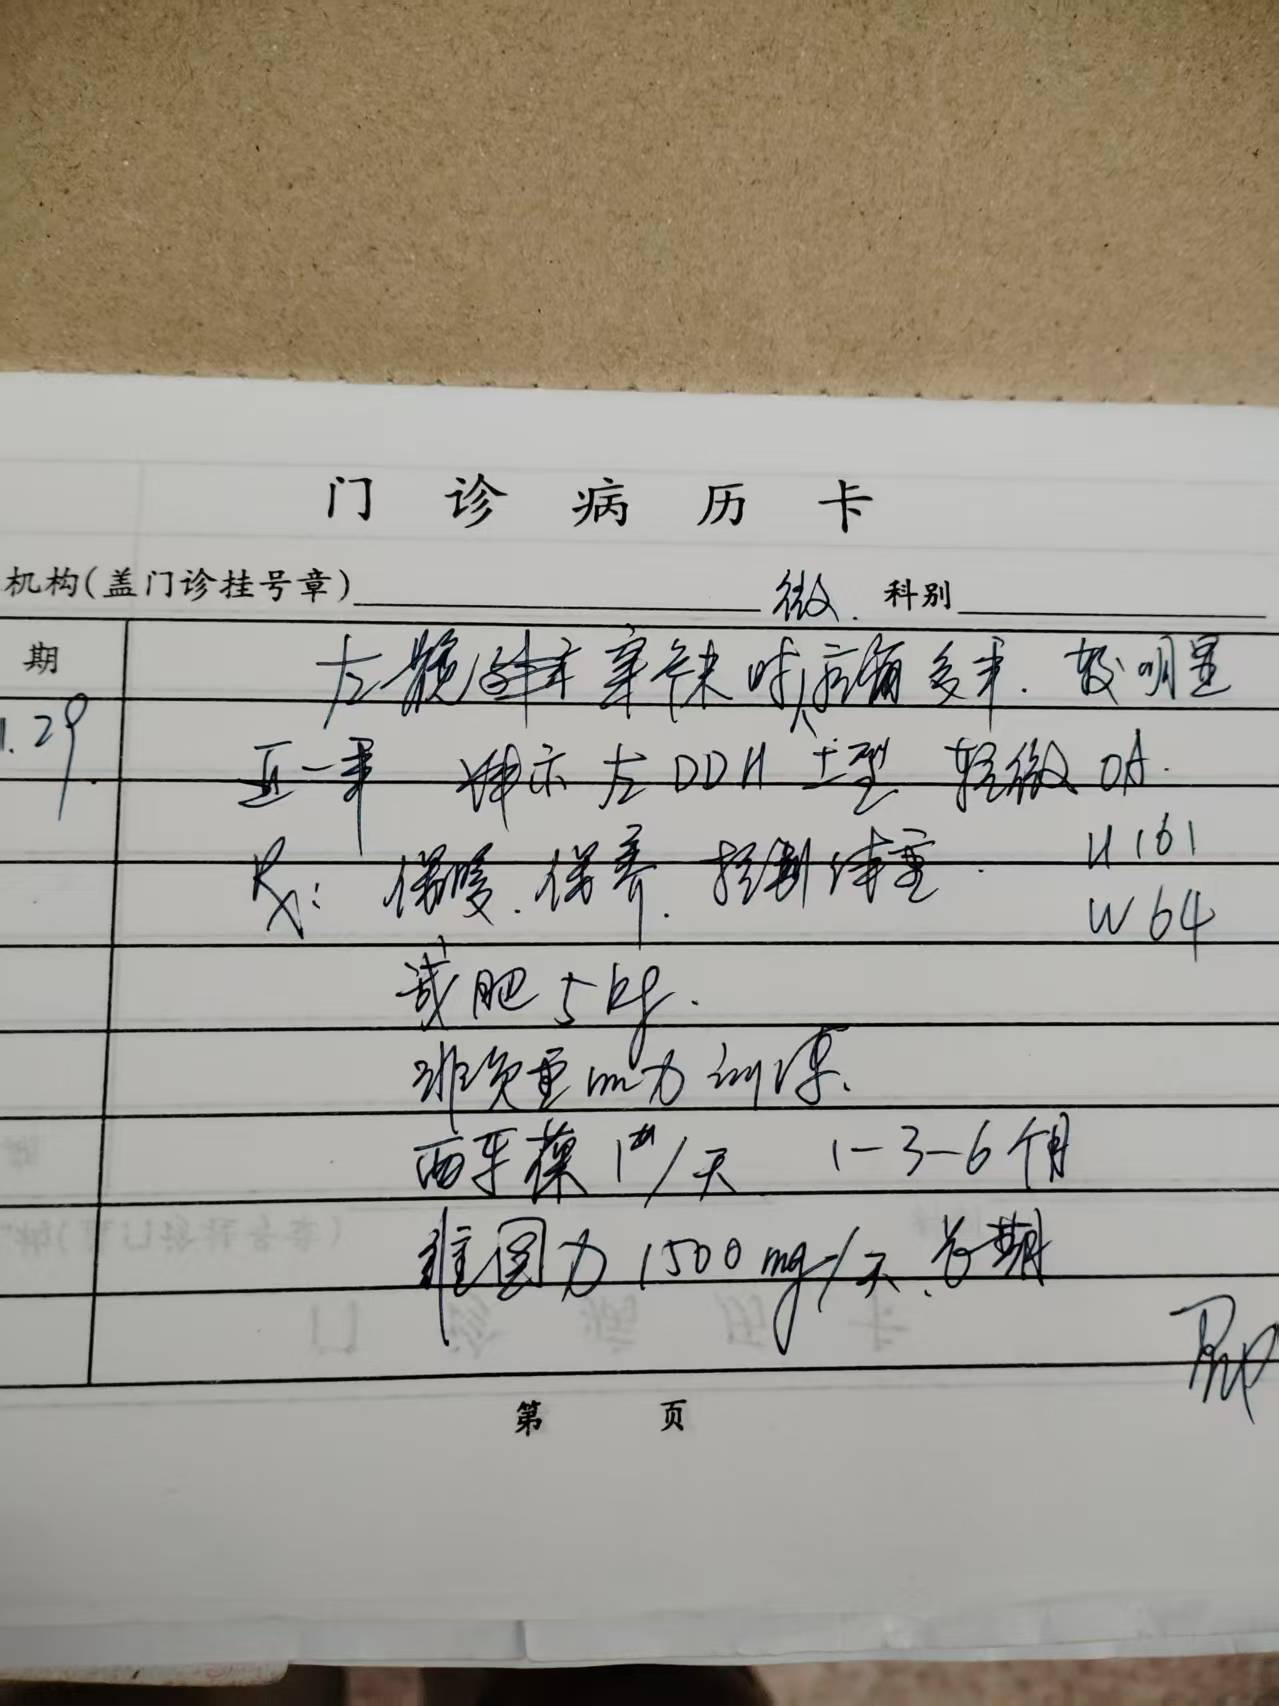 门诊病历卡
机构(盖门诊挂号章) 微. 科别
期 左髋 时有痛多年. 较明显
1.29. 近一年 示左DDH 型 轻微OA.
Rx: 保暖. 保养. 控制体重. H161
W64
减肥5kg.
非负重肌力训练.
西乐葆 1#/天 1-3-6个月
维固力 1500mg/天. 长期
第 页